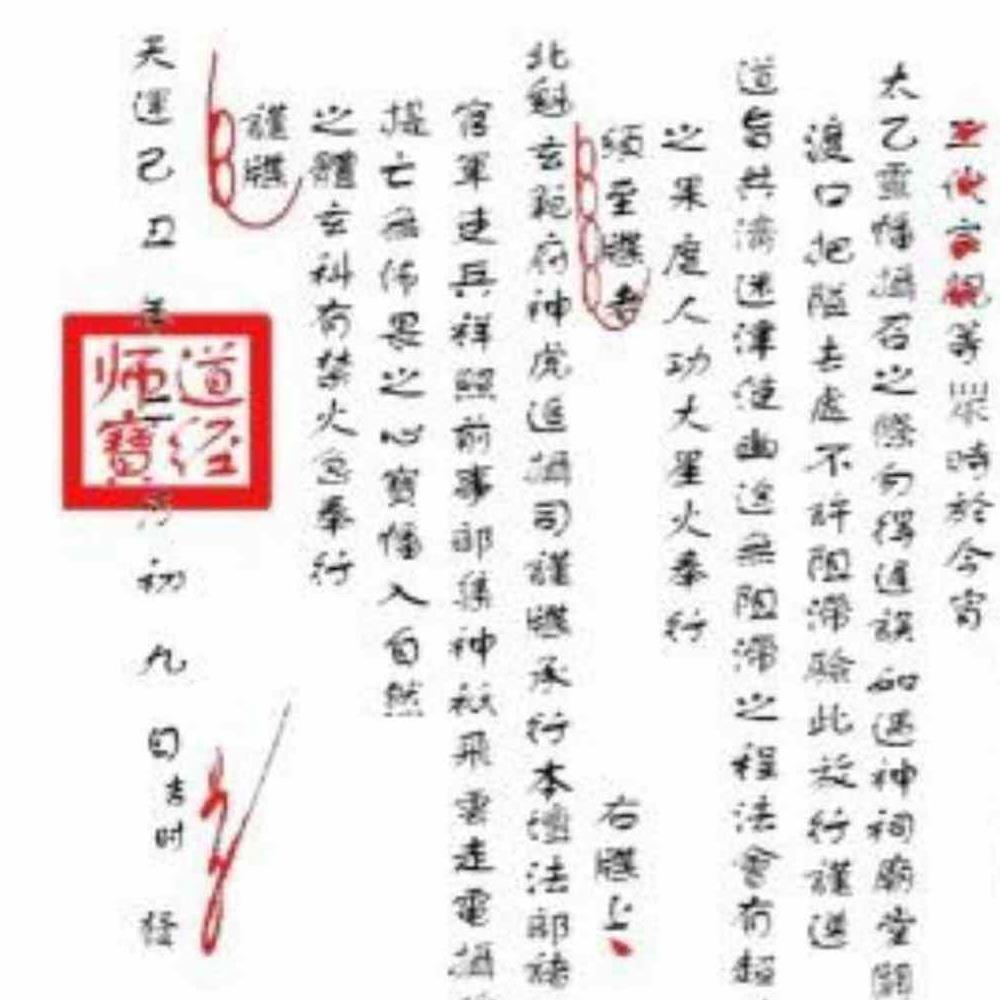 三代宗親等眾時於今宵
太乙靈幡攝召之際勿得違誤如遇神祠廟堂關
渡口把隘去處不許阻滯驗此放行謹遵
道旨共濟迷津使幽途無阻滯之程法會有超
之果度人功大星火奉行
須至牒者
右牒上
北魁玄範府神虎追攝司謹牒承行本壇法部諸
官軍走兵祥照前事部集神祇飛雲走電攝
提亡無怖畏之心寶幡入自然
之體玄科有禁火急奉行
謹牒
天運己丑年 月初九日吉时
道经师寶